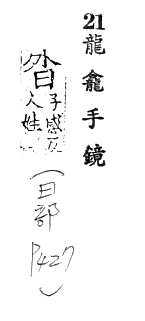 21 龍龕手鏡
昝
子感反
人姓
(日部 P427)